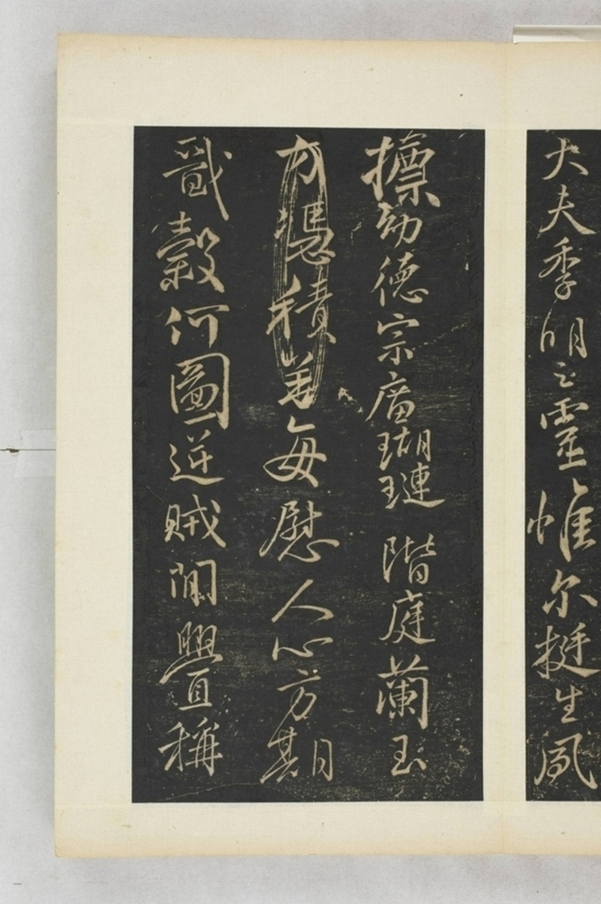 大夫季明之靈惟尔挺生夙
摽幼德宗庿瑚璉階庭蘭玉
方憑積善每慰人心方期
戩穀何圖逆賊閒舋稱